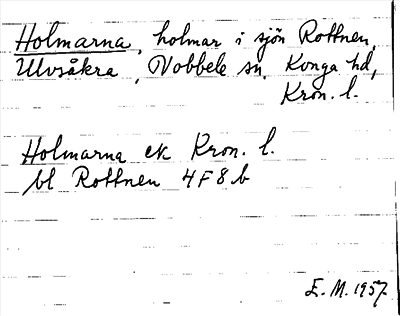 Holmarna, holmar i sjön Rottnen,
Ulvsåkra, Nobbele sn, Konga hd,
Kron. l.
Holmarna ek Kron. l.
bl Rottnen 4F8b
E. M. 1957